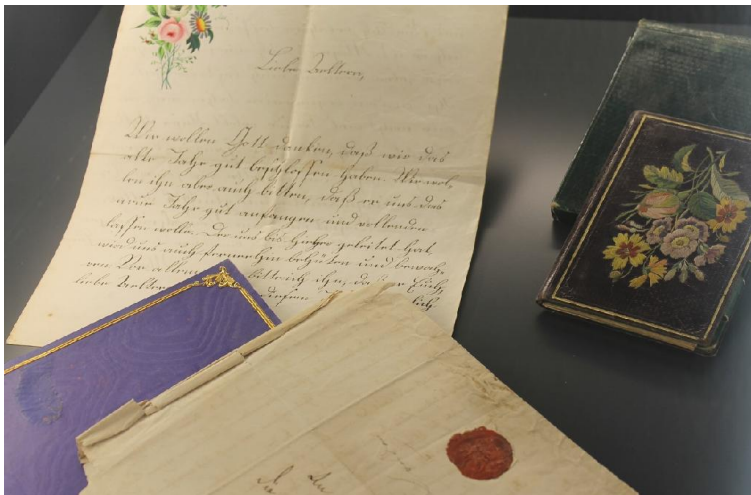 Liebe Aeltern,
Wir wollen Gott danken, daß wir das
alte Jahr gut beschlossen haben. Wir wol-
len ihn aber auch bitten, daß er uns das
neue Jahr gut anfangen und vollenden
lassen wolle. Der uns bis hieher geleitet hat,
wird uns auch fernerhin behüten und bewah-
ren. Vor allem bitte ich ihn, daß er Euch,
liebe Aeltern diesem